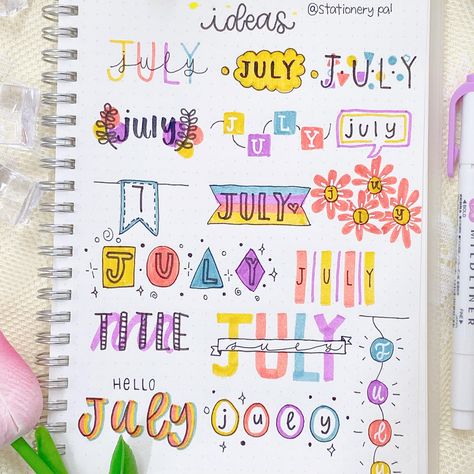 ideas
@stationery.pal
JULY
july
JULY
JULY
july
JULY
july
7
JULY
july
JULY
JULY
TITLE
JULY
july
HELLO
July
july
July